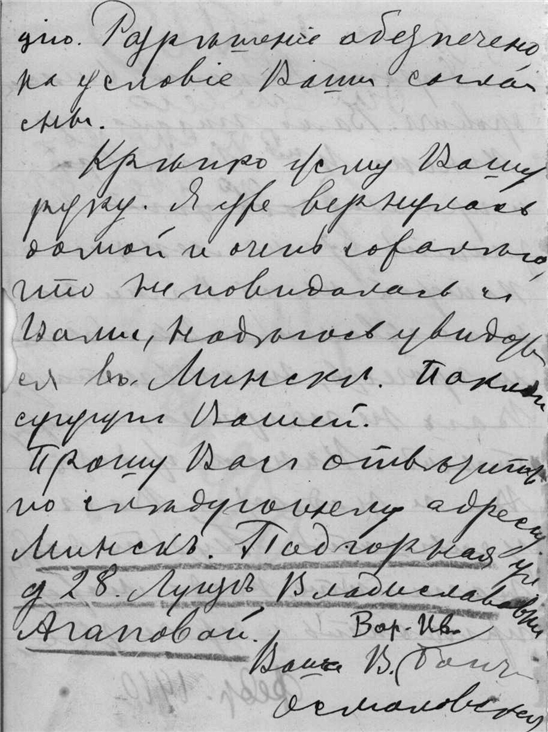 дно. Разрѣшеніе обезпечено,
на условіе Ваши соглас
сны.
Крѣпко жму Вашу
руку. Я уже вернулась
домой и очень сожалѣю,
что не повидалась съ
Вами, надѣюсь увидѣть
ся въ Минскѣ. Поклон
супругѣ Вашей.
Прошу Васъ отвѣтить
по слѣдующему адресу
Минскъ. Подгорная ул
д 28. Луцѣ Владиславовнѣ
Агаповой.
Вар. Ив.
Ваша В. Бонч
Осмоловская